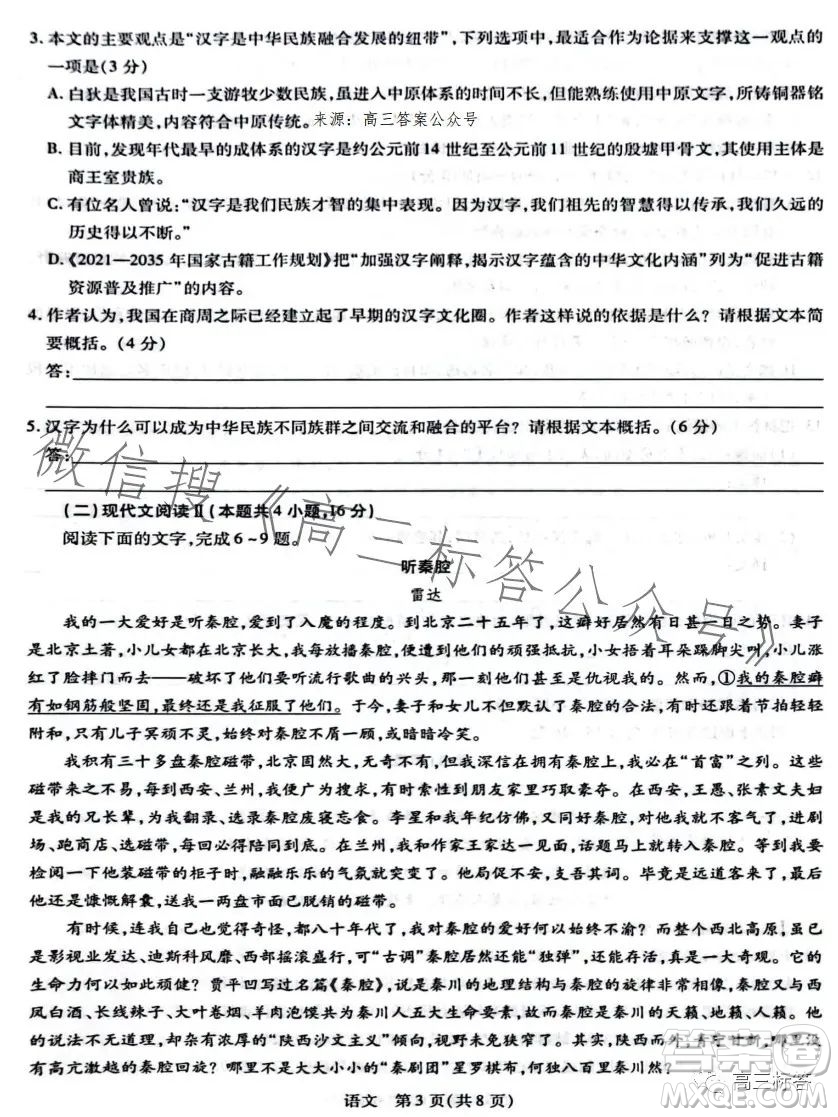 3. 本文的主要观点是“汉字是中华民族融合发展的纽带”,下列选项中,最适合作为论据来支撑这一观点的
一项是(3 分)
A. 白狄是我国古时一支游牧少数民族,虽进入中原体系的时间不长,但能熟练使用中原文字,所铸铜器铭
文字体精美,内容符合中原传统。来源: 高三答案公众号
B. 目前,发现年代最早的成体系的汉字是约公元前 14 世纪至公元前 11 世纪的殷墟甲骨文,其使用主体是
商王室贵族。
C. 有位名人曾说:“汉字是我们民族才智的集中表现。因为汉字,我们祖先的智慧得以传承,我们久远的
历史得以不断。”
D.《2021—2035 年国家古籍工作规划》把“加强汉字阐释,揭示汉字蕴含的中华文化内涵”列为“促进古籍
资源普及推广”的内容。
4. 作者认为,我国在商周之际已经建立起了早期的汉字文化圈。作者这样说的依据是什么? 请根据文本简
要概括。(4 分)
答:
5. 汉字为什么可以成为中华民族不同族群之间交流和融合的平台? 请根据文本概括。(6 分)
答:
微信搜《高三标答公众号》
(二)现代文阅读Ⅱ(本题共 4 小题,16 分)
阅读下面的文字,完成 6~9 题。
听秦腔
雷达
我的一大爱好是听秦腔,爱到了入魔的程度。到北京二十五年了,这癖好居然有日甚一日之势。妻子
是北京土著,小儿女都在北京长大,我每放播秦腔,便遭到他们的顽强抵抗,小女捂着耳朵跺脚尖叫,小儿涨
红了脸摔门而去——破坏了他们要听流行歌曲的兴致,那一刻他们甚至是仇视秦腔的。然而,①我的秦腔癖
有如钢筋般坚固,最终还是我征服了他们。于今,妻子和女儿不但默认了秦腔的合法,有时还跟着节拍轻轻
附和,只有儿子冥顽不灵,始终对秦腔不屑一顾,或暗暗冷笑。
我积有三十多盘秦腔磁带,北京固然大,无奇不有,但我深信在拥有秦腔上,我必在“首富”之列。这些
磁带来之不易,每到西安、兰州,我便广为搜求,有时到了向朋友家里巧取豪夺。在西安,王愚、张素文夫妇
是我的兄长辈,为我翻录、选录秦腔废寝忘食。李星和我年纪仿佛,又同好秦腔,对他我就不客气了,进剧
场、跑商店、选磁带,每回必得陪同到底。在兰州,我和作家王家达一见面,话题马上就转入秦腔。等到我要
检阅一下他装磁带的柜子时,融融乐乐的气氛就突变了。他局促不安,支支吾吾,形色慌张。毕竟是远道来
客,他还是慷慨解囊,送我一两盘市面上已脱销的磁带。
有时候,连我自己也觉得奇怪,都八十年代了,我对秦腔的爱好何以始终不渝? 而在整个西北高原,不管
是影视业发达、迪斯科风靡、西部摇滚盛行,可“古调”秦腔居然还能“独弹”,还能不衰,真是一大奇观。它的
生命力何以如此顽健? 贾平凹写过名篇《秦腔》,说是秦川的地理结构与秦腔的旋律非常相像,秦腔又与西
凤白酒、长线辣子、大叶卷烟、羊肉泡馍共为秦川人五大生命要素,所以秦腔是秦川的天籁、地籁、人籁。他
的说法不无道理,却有浓厚的“陕西沙文主义”倾向,视野未免狭窄了。其实,陕西而外,青宁甘新,哪里没
有高亢激越的秦腔回旋? 哪里不是大大小小的“秦剧团”星罗棋布,何独八百里秦川然?
高三标答
语文 第 3 页(共 8 页)